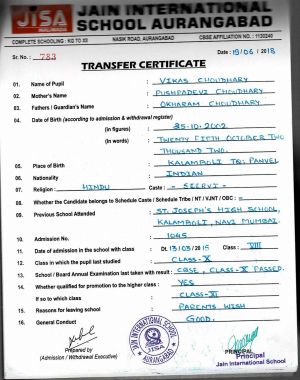 JISA
JAIN INTERNATIONAL
SCHOOL AURANGABAD
COMPLETE SCHOOLING : KG TO XII NASIK ROAD, AURANGABAD CBSE AFFILIATION NO. : 1130246
Sr. No.: 783 Date : 19/06/2018
TRANSFER CERTIFICATE
01. Name of Pupil : VIKAS CHOUDHARY
02. Mother's Name : PUSHPADEVI CHOUDHARY
03. Fathers / Guardian's Name : OKHARAM CHOUDHARY
04. Date of Birth (according to admission & withdrawal register)
(in figures) : 25-10-2002
(in words) : TWENTY FIFTH OCTOBER TWO
THOUSAND TWO.
05. Place of Birth : KALAMBOLI TQ: PANVEL
06. Nationality : INDIAN
07. Religion : HINDU Caste : - SEERVI -
08. Whether the Candidate belongs to Schedule Caste / Schedule Tribe / NT / VJNT / OBC : =
09. Previous School Attended : ST. JOSEPH'S HIGH SCHOOL,
KALAMBOLI, NAVI MUMBAI.
10. Admission No. : 1045
11. Date of admission in the school with class : Dt. 13/03/2015 Class : VIII
12. Class in which the pupil last studied : CLASS-X
13. School / Board Annual Examination last taken with result : CBSE, CLASS-X PASSED.
14. Whether qualified for promotion to the higher class : YES
If so to which class : CLASS-XI
15. Reasons for leaving school : PARENTS WISH
16. General Conduct : GOOD.
JAIN INTERNATIONAL SCHOOL
JISA
AURANGABAD
Prepared by
(Admission / Withdrawal Executive)
PRINCIPAL
Principal
Jain International School